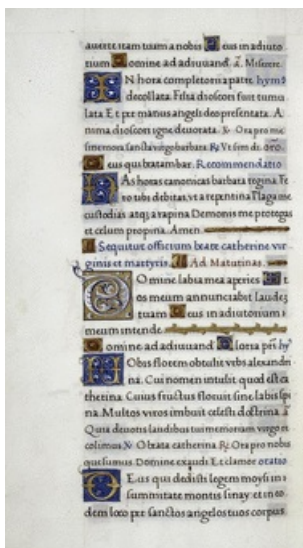 auerte iram tuam a nobis Deus in adiuto
rium Domine ad adiuuand a. Miserere.
IN hora completorii a patre hymꝰ
decollata. Filia dioscori fuit tumu
lata Et per manus angeli deo presentata. A
nima dioscori igne deuorata. ℣ Ora pro me
sine mora sancta virgo barbara ℟ Ut sim di. oro.
Deus qui tratambar. Recommendatio
HAs horas canonicas barbara regina Fe
ro tibi debitas, vt a repentina Plaga me
custodias atq; a rapina Demonis me protegas
et celum propina. Amen.
Sequitur officium beate catherine vir
ginis et martyris Ad Matutinas.
DOmine labia mea aperies Et
os meum annunciabit laudez
tuam Deus in adiutorium
meum intende.
Domine ad adiuuand Gloria pri hy
NObis florem obtulit vrbs alexandri
na. Cui nomen intulit quod est ca
therina Cuius fructus floruit sine labis spi
na. Multos viros imbuit celesti doctrina a
Quia deuotis laudibus tui memoriam virgo et
colimus ℣ O beata catherina ℟ Ora pro nobis
quesumus Domine exaudi Et clamor oratio
DEus qui dedisti legem moysi in
summitate montis sinay et in eo
dem loco per sanctos angelos tuos corpus